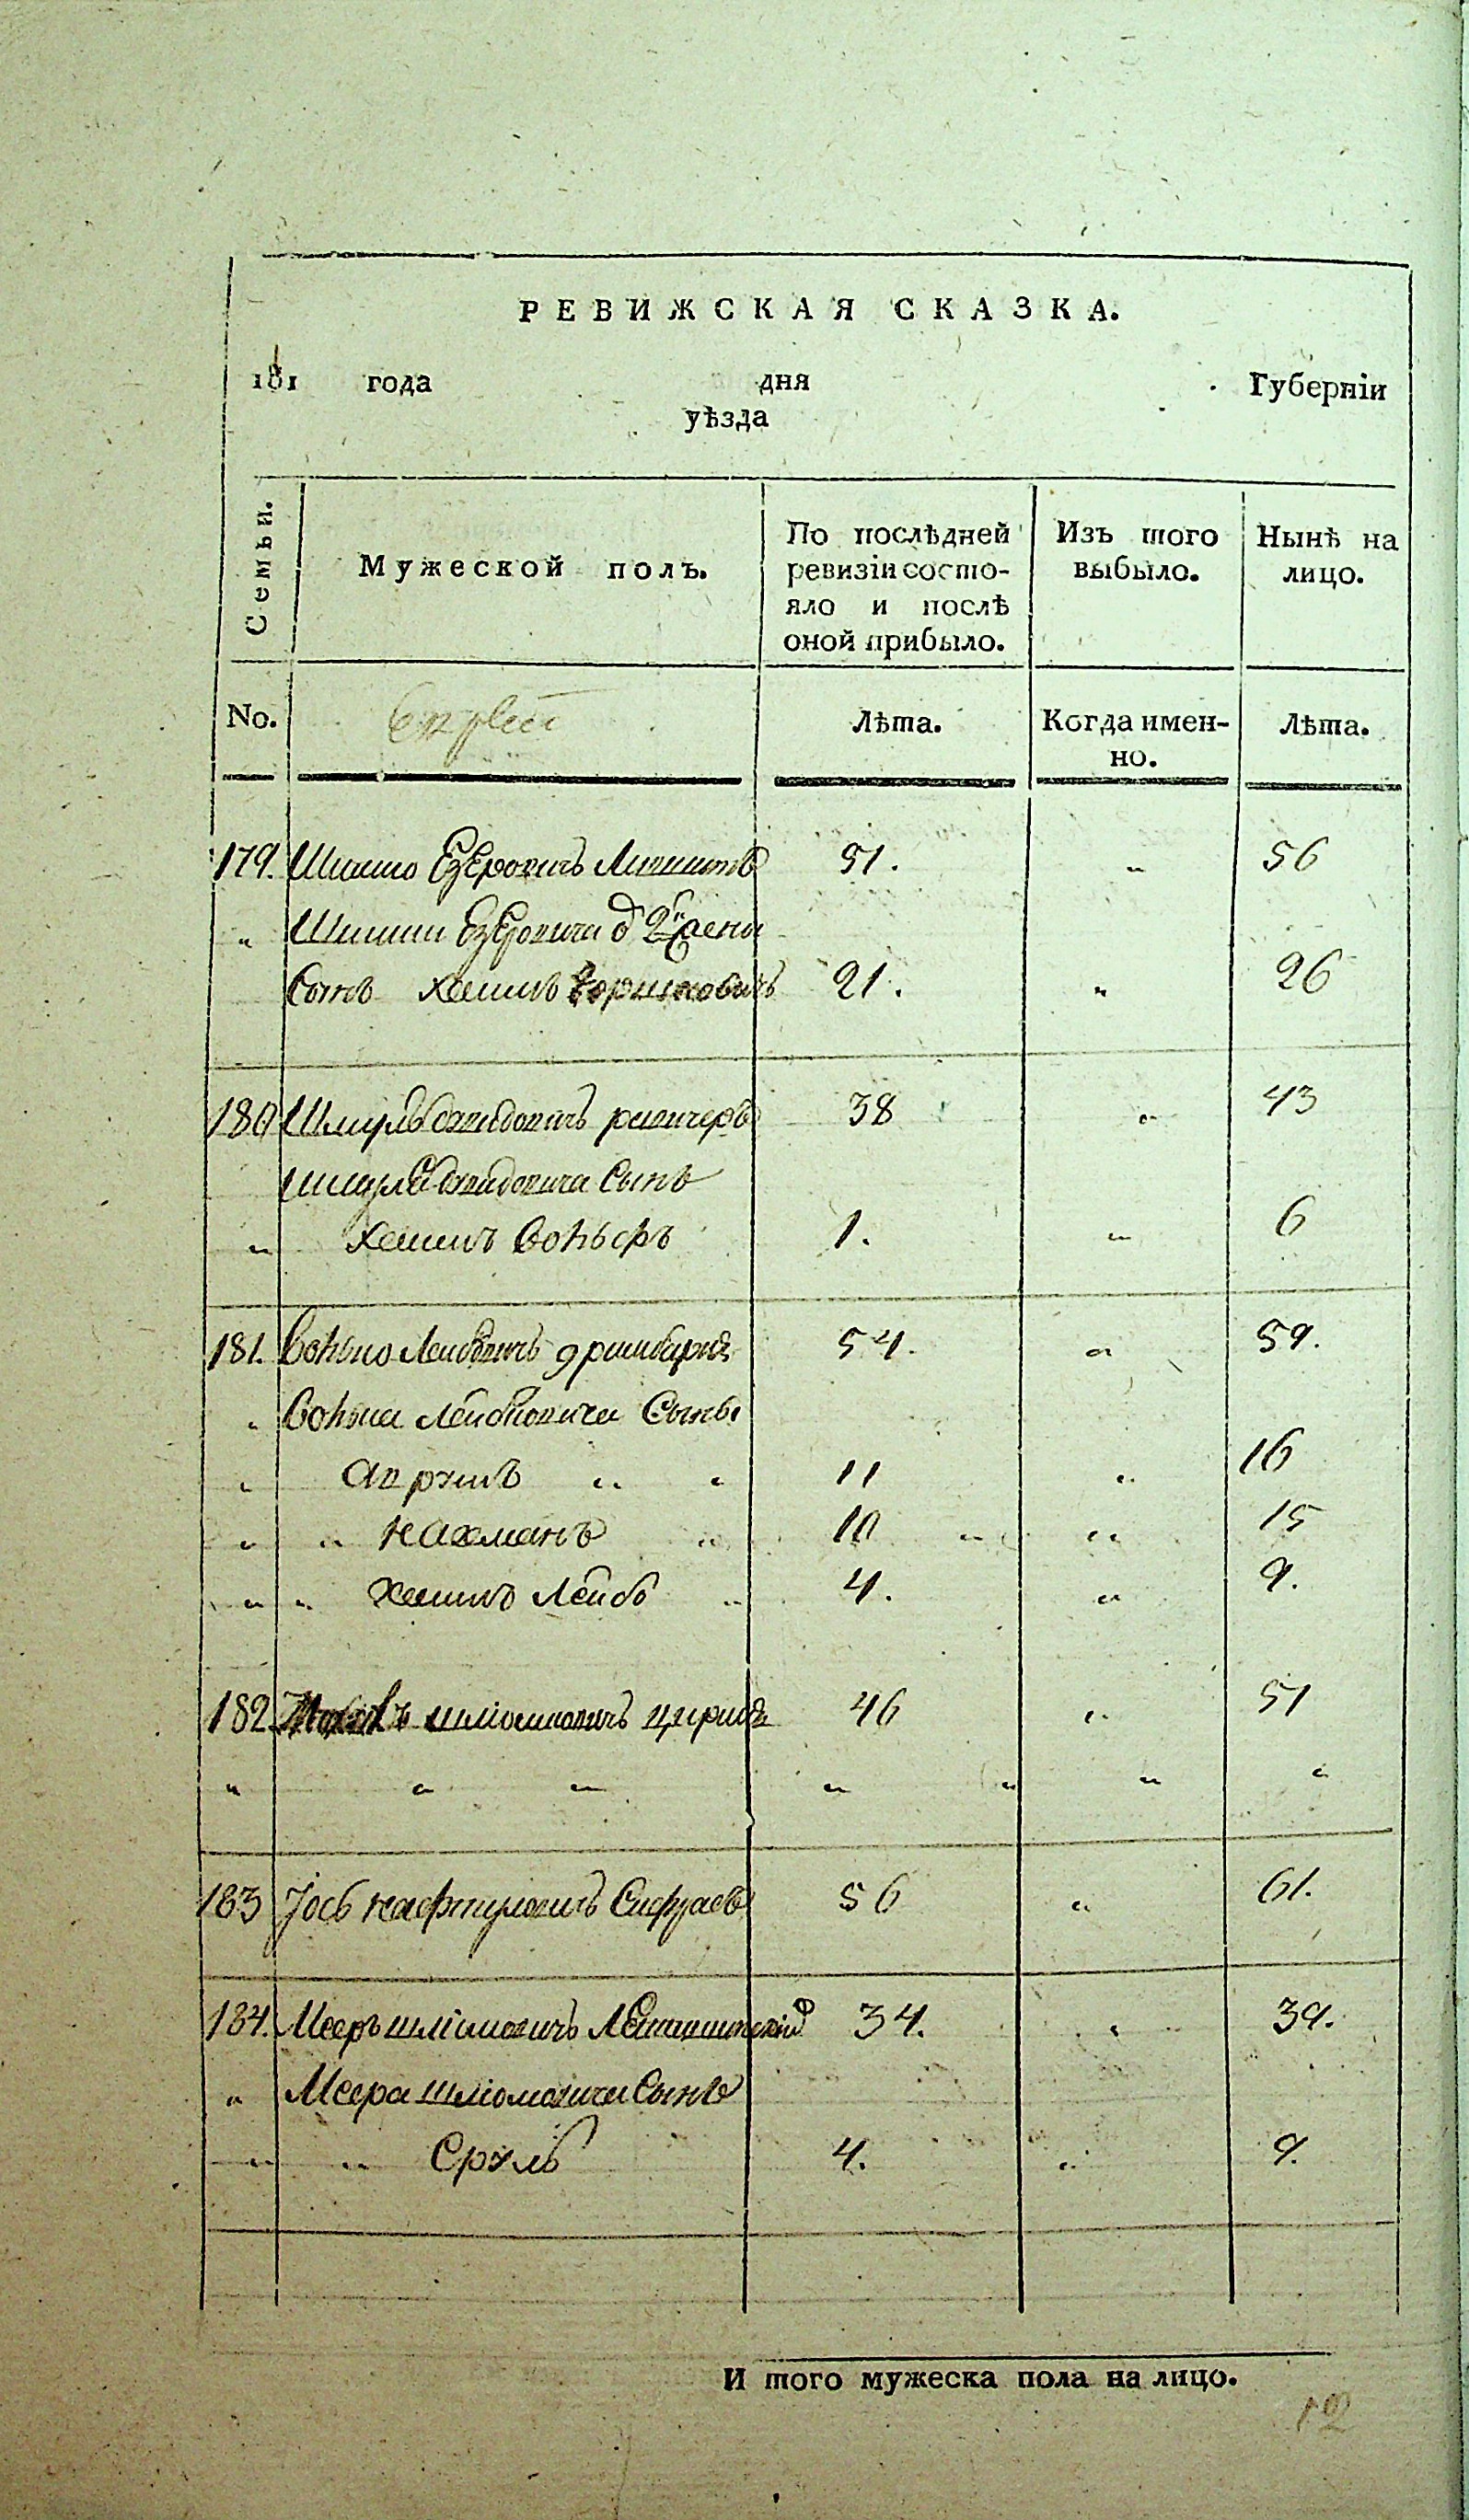 РЕВИЖСКАЯ СКАЗКА.
181 года дня Губерніи
уѣзда
Семьи. Мужеской полъ. По послѣдней ревизіи состояло и послѣ оной прибыло. Изъ того выбыло. Нынѣ на лицо.
No. Еврей Лѣта. Когда именно. Лѣта.
179. Шимио Езеровичъ 51. " 56
" Шимии Езеровича
Сынъ Хаимъ 21. " 26
180 Шмуль Давидовичъ 38 " 43
Шмуля Давидовича Сынъ
" Хаимъ Вольфъ 1. " 6
181. Волько Лейбовичъ 54. " 59.
" Волька Лейбовича Сыны
" Аврумъ " " 11 " 16
" " Нахманъ " 10 " " 15
" " Хаимъ Лейбъ " 4. " 9.
182 Шліомовичъ 46 " 51
" " " " " " "
183 Іось Нафтуловичъ 56 " 61.
184. Мееръ Шліомовичъ 34. " 39.
" Меера Шліомовича Сынъ
" " Сруль 4. " 9.
И того мужеска пола на лицо.
12